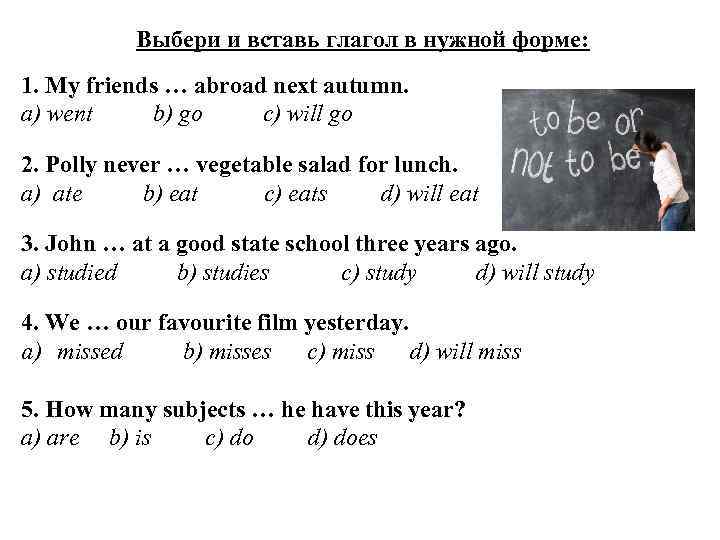 Выбери и вставь глагол в нужной форме:
1. My friends … abroad next autumn.
a) went b) go c) will go
to be or
not to be
2. Polly never … vegetable salad for lunch.
a) ate b) eat c) eats d) will eat
3. John … at a good state school three years ago.
a) studied b) studies c) study d) will study
4. We … our favourite film yesterday.
a) missed b) misses c) miss d) will miss
5. How many subjects … he have this year?
a) are b) is c) do d) does